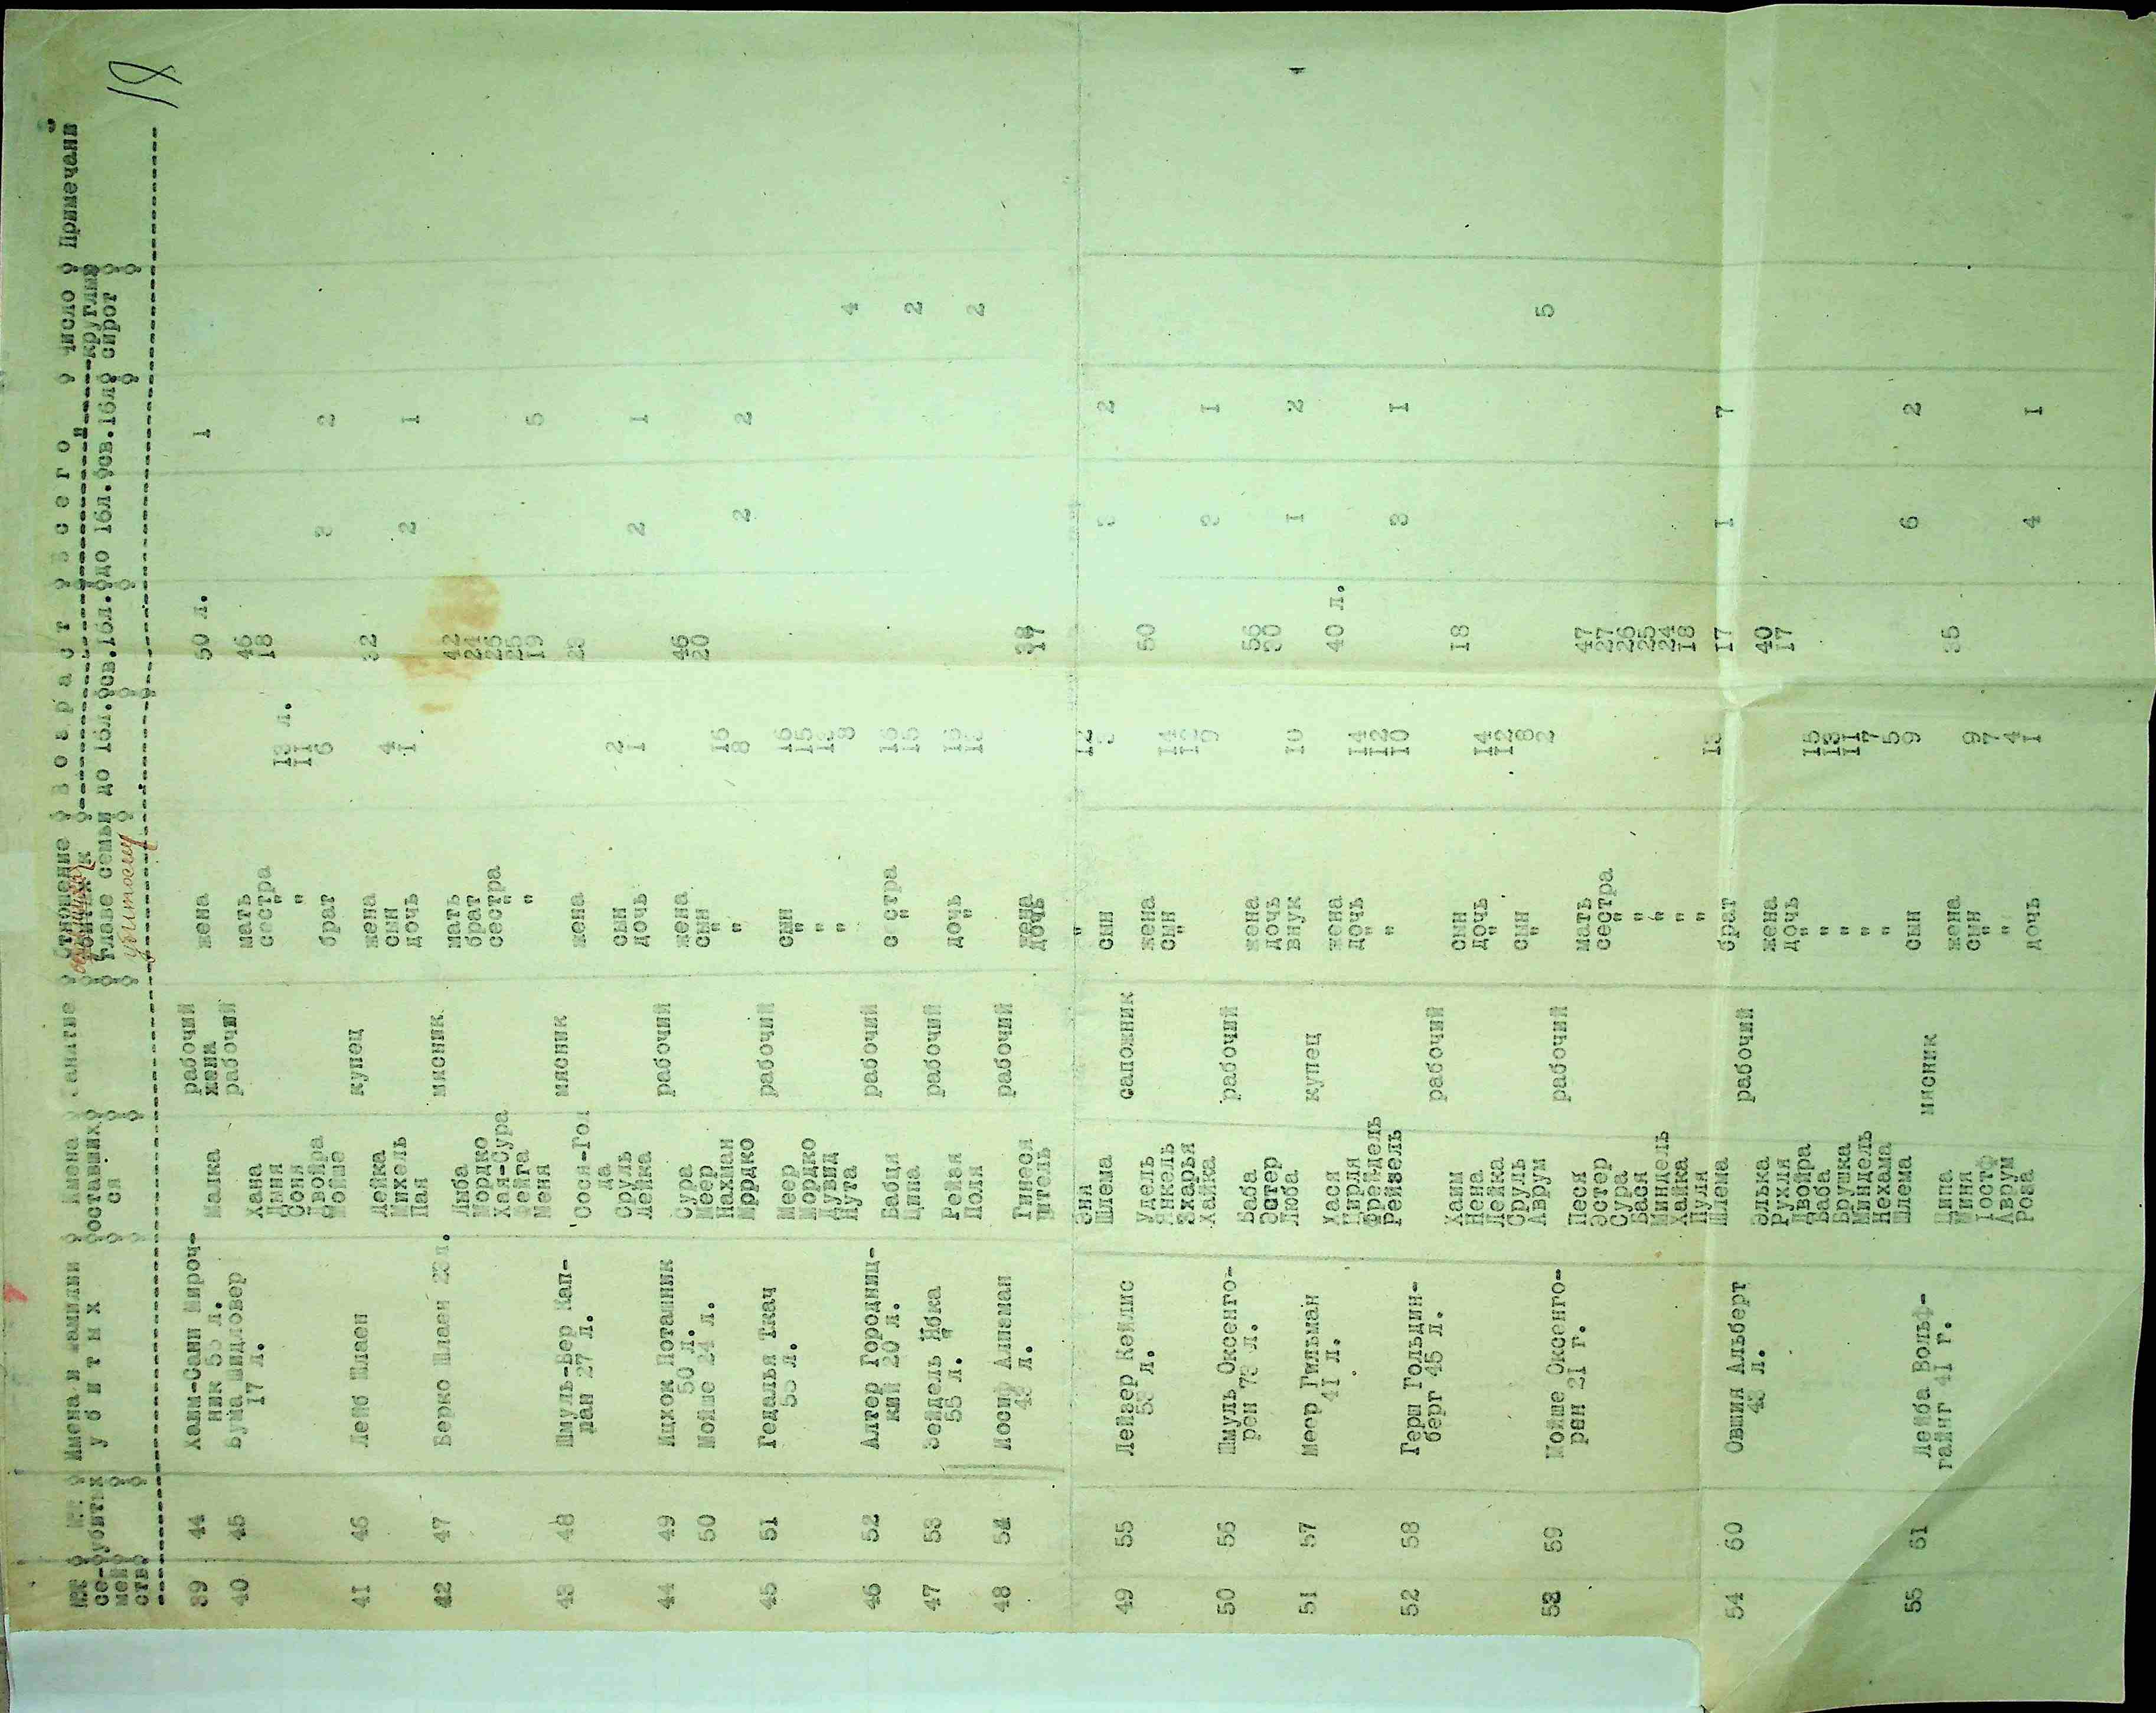 18
№№ се-мей ств. №№ убитых Имена и фамилии убитых Имена оставшихся Занятие Отношение к главе семьи Возраст до 16л. св.16л. Всего до 16л. св.16л. Число круглых сирот Примечани
убитому
39 44 Хаим-Сани Мироч- рабочий
ник 55 л. Малка жена жена 50 л. 1
40 45 Бума Шидловер рабочий
17 л. Хана мать 46
сестра 18
Соня " 13 л.
Двойра " 11
Мойше брат 6 3 2
41 46 Лейб Шлаен купец
Лейка жена 32
Михель сын 4
Пая дочь 1 2 1
42 47 Берко Шлаен мясник
Либа мать 42
Мордко брат 24
Хая-Сура сестра 25
Фейга " 25
Меня " 19 5
43 48 Шмуль-Бер Кап- мясник
лан 27 л. Сося-Гол жена 23
да
Сруль сын 2
Лейка дочь 1 2 1
44 49 Ицхок Поташник рабочий
50 л. Сура жена 46
50 Мойше 24 л. Меер сын 20
Нахман " 16
Мордко " 8 2 2
45 51 Гедалья Ткач рабочий
55 л. Меер сын 16
Мордко " 15
Дувид " 13
Нута " 8 4
46 52 Алтер Городниц- рабочий
кий 20 л. Бабця сестра 16
Цина " 15 2
47 53 Зейдель Ябка рабочий
55 л. Рейзя дочь
Поля " 2
48 54 Иосиф Алпеман рабочий
43 л. Гинеся жена 38
Цитель дочь 17
Эня " 12
Шлема сын 3 3 2
49 55 Лейзер Кейлис сапожник
53 л. Удель жена 50
Янкель сын 14
Захарья " 12
Хайка 9 3 1
50 56 Шмуль Оксенго- рабочий
рен 73 л. Баба жена 56
Эстер дочь 30
Люба внук 10 1 2
51 57 Меер Гильман купец
41 л. Хася жена 40 л.
Цирля дочь 14
Фрейдель " 12
Рейзель " 10 3 1
52 58 Герш Гольдин- рабочий
берг 45 л. Хаим сын 18
Нена дочь 14
Лейка " 12
Сруль сын 8
Аврум " 2 5
53 59 Мойше Оксенго- рабочий
рен 21 г. Песя мать 47
Эстер сестра 27
Сура " 26
Бася " 25
Миндель " 24
Хайка " 18
Пуля " 17
Шлема брат 13 1 7
54 60 Овшия Альберт рабочий
43 л. Элька жена 40
Рухля дочь 17
Двойра " 15
Баба " 13
Врушка " 11
Миндель " 7
Нехама " 5
Шлема сын 9 6 2
55 61 Лейба Вольф- мясник
гайнг 41 г. Ципа жена 35
Миня сын 9
Іостф " 7
Аврум " 4
Роза дочь 1 4 1